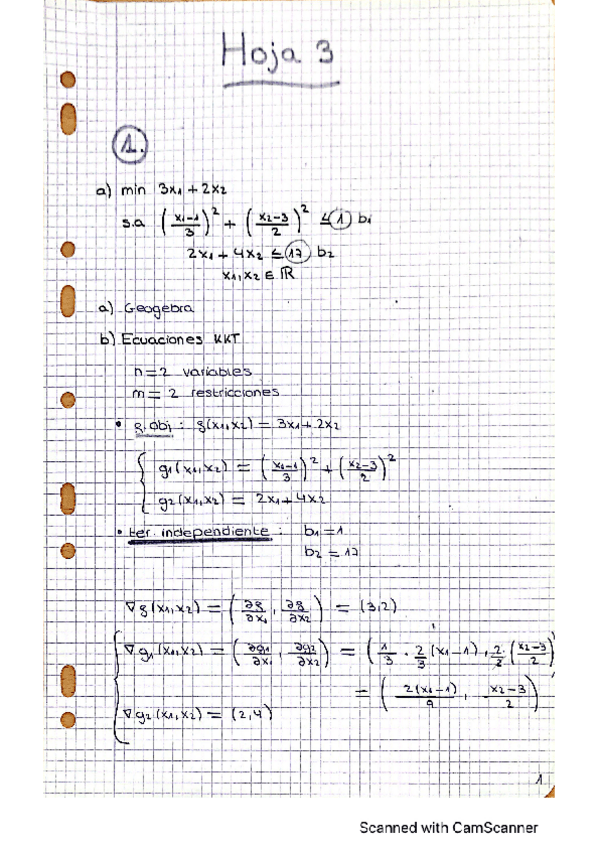 Hoja 3
1.
a) min 3x1 + 2x2
s.a (x1-1/3)^2 + (x2-3/2)^2 ≤ 1 b1
2x1 + 4x2 ≤ 17 b2
x1, x2 ∈ ℝ
a) Geogebra
b) Ecuaciones KKT
n = 2 variables
m = 2 restricciones
• g.obj : g(x1,x2) = 3x1 + 2x2
g1(x1,x2) = (x1-1/3)^2 + (x2-3/2)^2
g2(x1,x2) = 2x1 + 4x2
• ter. independiente : b1 = 1
b2 = 17
∇g(x1,x2) = (∂g/∂x1, ∂g/∂x2) = (3,2)
∇g1(x1,x2) = (∂g1/∂x1, ∂g2/∂x2) = (1/3 · 2/3 (x1-1), 2/2 · (x2-3/2)
= (2(x1-1)/9, x2-3/2)
∇g2(x1,x2) = (2,4)
1
Scanned with CamScanner